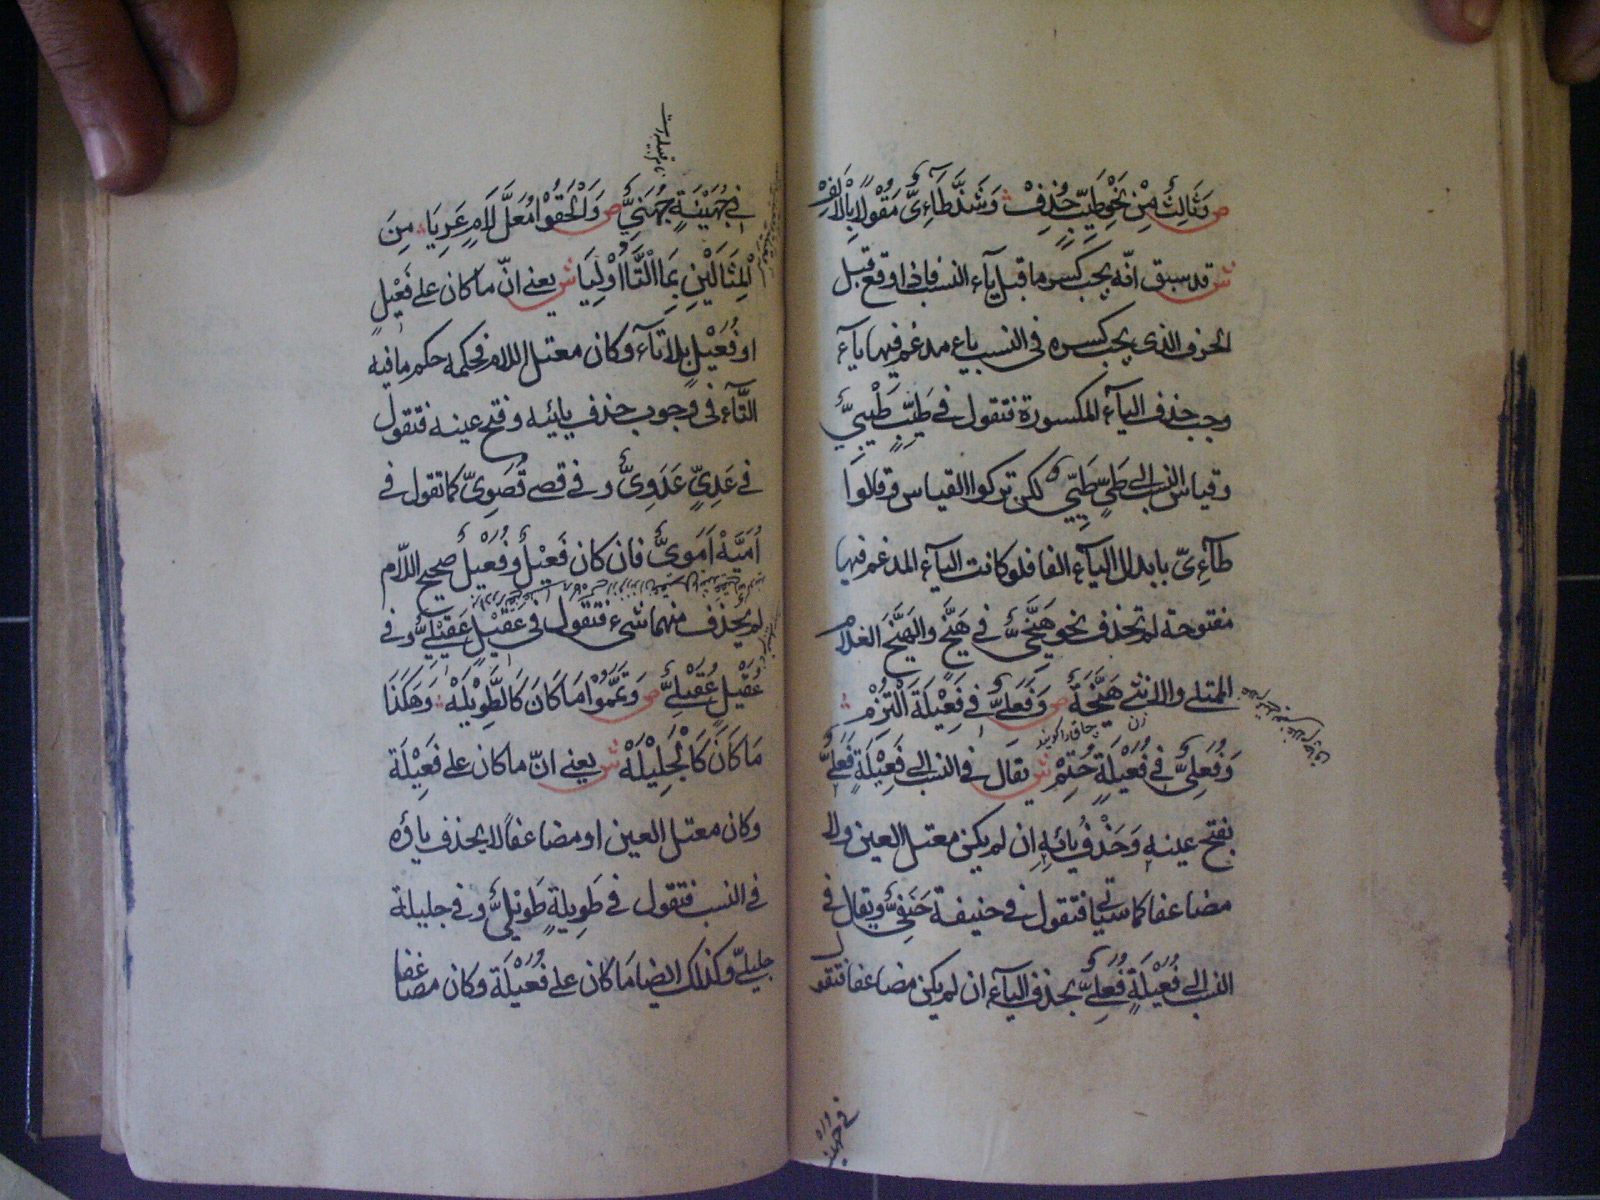 ص وَثَالِثٌ مِنْ نَحْوِ طَيِّبٍ حُذِفْ ؞ وَشَذَّ طَآئِىٌّ مَقُوْلًا بِالْاَلِفْ
ش قد سبق انّه يجب كسر ما قبل يآء النسب فاذا وقع قبل
الحرف الذى يجب كسره فى النسب ياء مدغم فيها يآء
وجب حذف اليآء المكسورة فتقول فى طَيِّبٍ طَيْبِىٌّ
وقياس النسب الى طَىٍّ طَيْئِىٌّ لكن تركوا القياس وقالوا
طآءِىّ بابدال اليآء الفا فلو كانت اليآء المدغم فيها
مفتوحة لم تحذف نحو هَبَيَّخِىٌّ فى هَبَيَّخٍ والهَبَيَّخ الغلام
الممتلى والانثى هَبَيَّخَةٌ ص وَفَعَلِىٌّ فى فَعِيْلَةَ الْتُزِمْ ؞
وَفُعَلِىٌّ فى فُعَيْلَةٍ حُتِمْ ش يقال فى النسب الى فَعِيْلَةٍ فَعَلِىٌّ
بفتح عينه وَحَذْفِ يائهِ ان لم يكن معتل العين ولا
مضاعفا كما سيأتى فتقول فى حنيفة حَنَفِىٌّ ويقال فى
النسب الى فُعَيْلَةٍ فُعَلِىٌّ بحذف اليآء ان لم يكن مضاعفا فتقول
فى جهينة
فى جُهَيْنَةٍ جُهَنِىٌّ ص وَاَلْحَقُوْا مُعَلَّ لَامٍ عَرِيَا ؞ مِنَ
الْمِثَالَيْنِ بِمَا الْتَّا اُوْلِيَا ش يعنى انّ ما كان على فَعِيْلٍ
او فُعَيْلٍ بلا تآء وكان معتل اللام فحكمه حكم ما فيه
التّآء فى وجوب حذف يائيه وفتح عينه فتقول
فى عَدِىٍّ عَدَوِىٌّ وفى قصى قُصَوِىّ كما تقول فى
اُمَيَّةْ اُمَوِىٌّ فان كان فَعِيْلٌ وفُعَيْلٌ صحيح اللّام
لم يحذف منهما شىء فتقول فى عَقِيْلٍ عَقِيْلِىٌّ وفى
عُقَيْلٍ عُقَيْلِىٌّ ص وَتَمَّمُوْا مَا كَانَ كَالطَّوِيْلَهْ ؞ وَهٰكَذَا
مَا كَانَ كَالْجَلِيْلَهْ ش يعنى انّ ما كان على فَعِيْلَة
وكان معتل العين او مضاعفًا لا يحذف ياؤه
فى النسب فتقول فى طَوِيلَةٍ طَوِيْلِىٌّ وفى جليلة
جليلىّ وكذلك ايضا مَا كان على فُعَيْلَة وكان مضاعفا